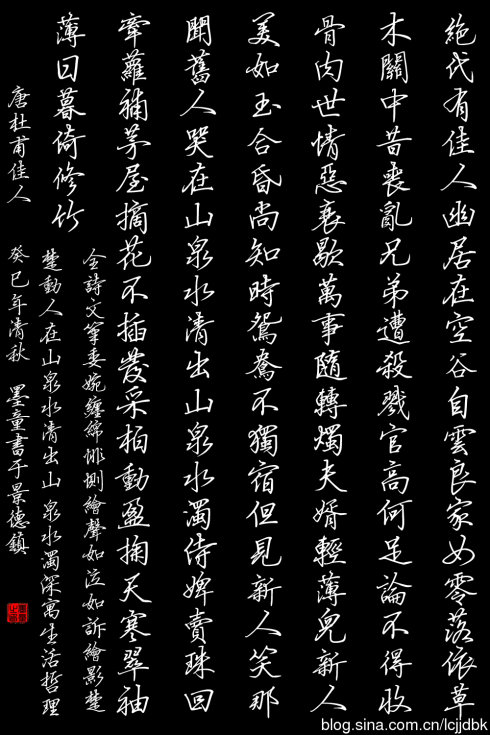 絕代有佳人幽居在空谷自雲良家女零落依草
木關中昔喪亂兄弟遭殺戮官高何足論不得收
骨肉世情惡衰歇萬事隨轉燭夫婿輕薄兒新人
美如玉合昏尚知時鴛鴦不獨宿但見新人笑那
聞舊人哭在山泉水清出山泉水濁侍婢賣珠回
牽蘿補茅屋摘花不插發采柏動盈掬天寒翠袖
薄日暮倚修竹
唐杜甫佳人
全詩文筆委婉纏綿悱惻繪聲如泣如訴繪影楚
楚動人在山泉水清出山泉水濁深寓生活哲理
癸巳年清秋 墨童書于景德鎮
blog.sina.com.cn/lcjjdbk